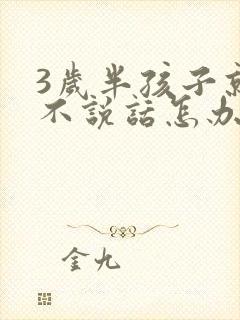 3歲半孩子
不說話怎办
金九